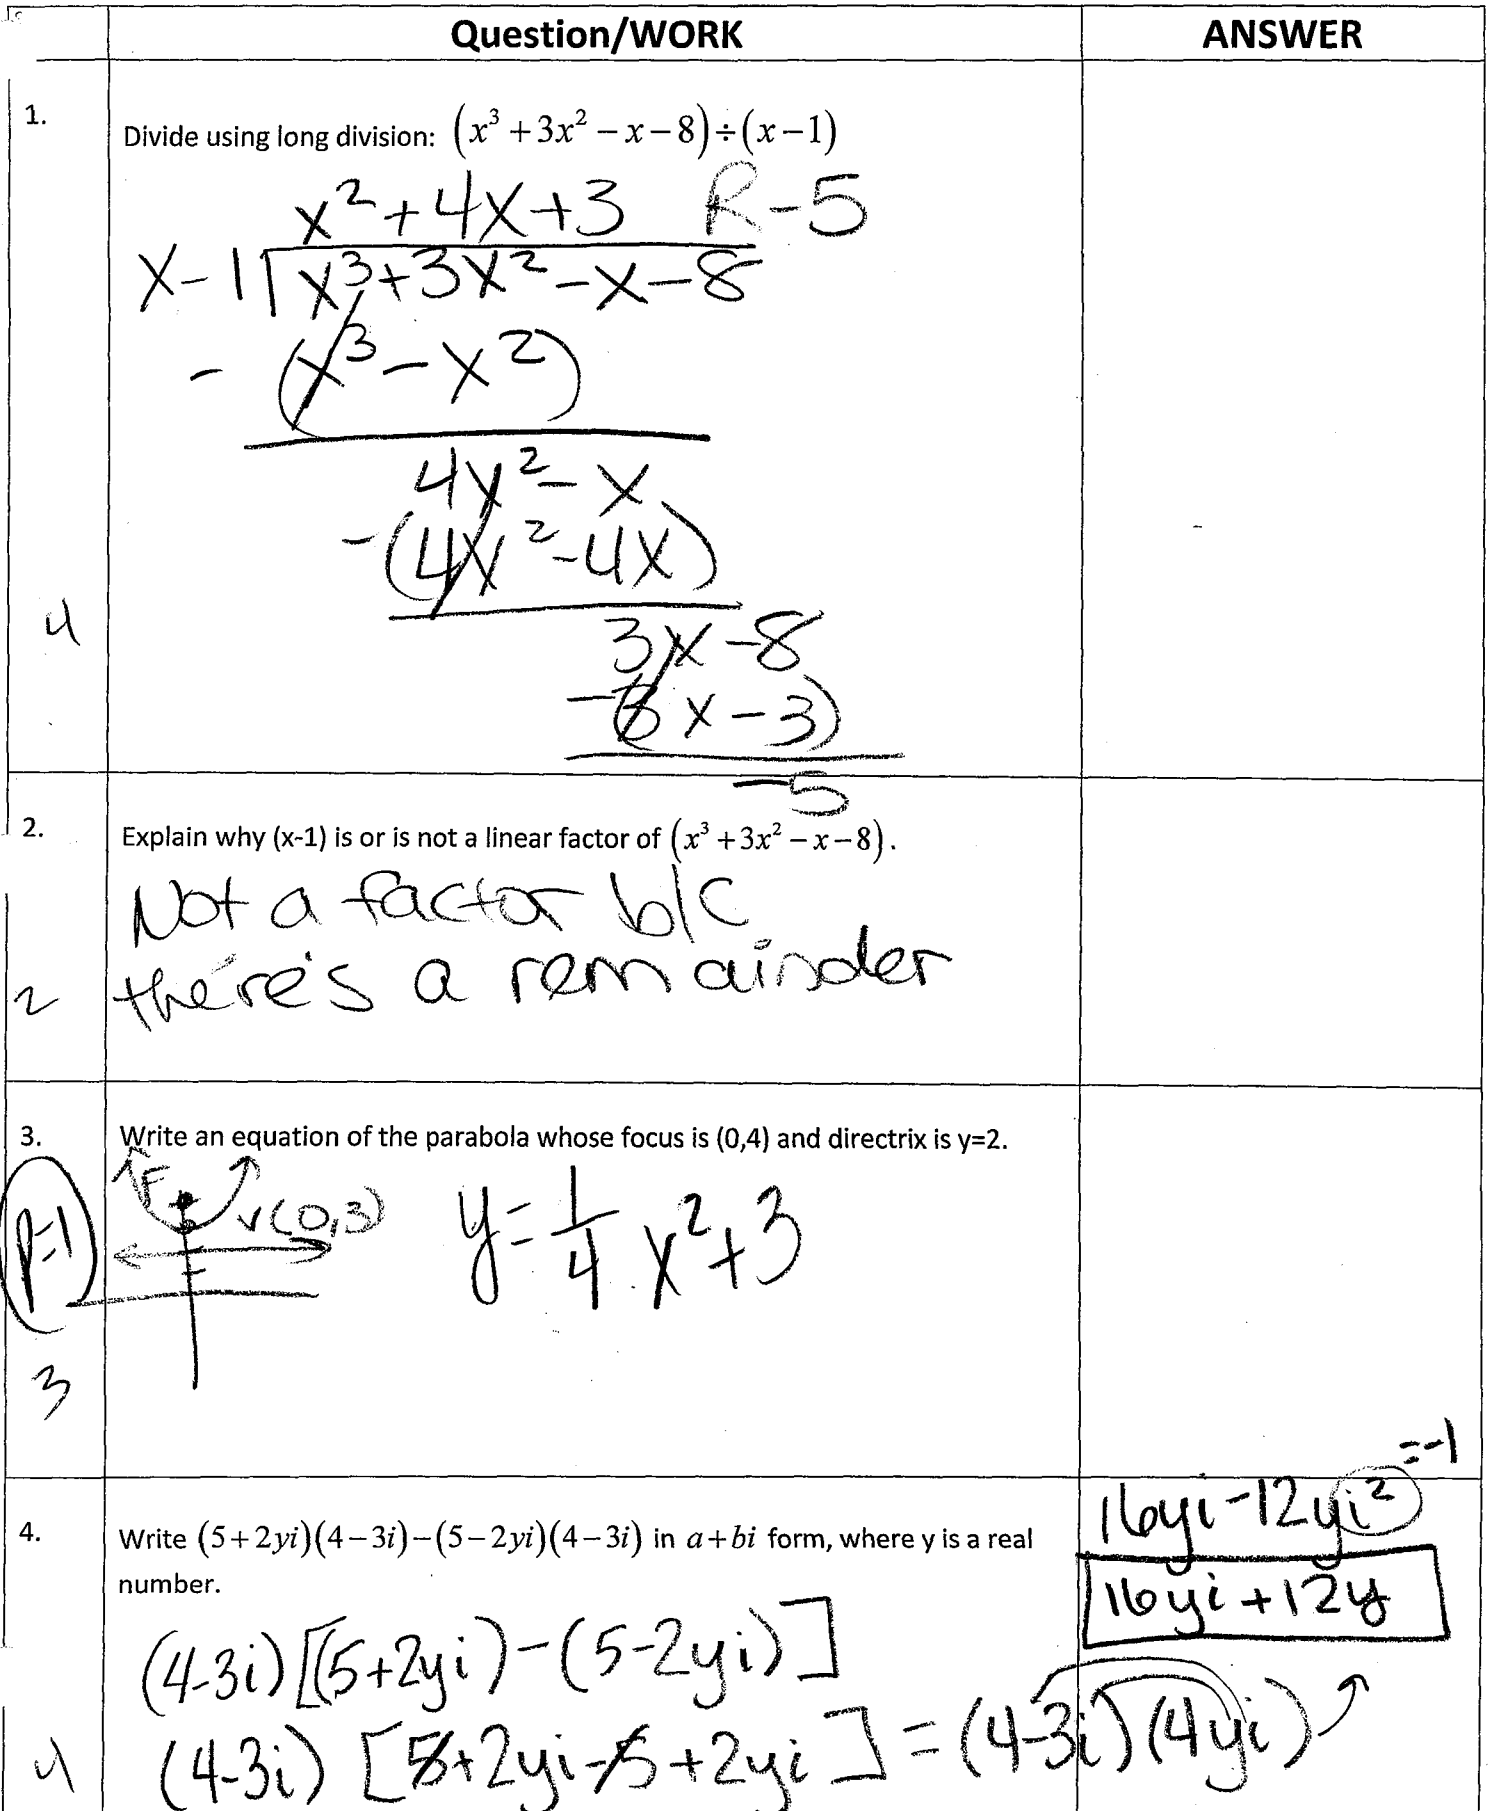 Question/WORK ANSWER
1.
Divide using long division: (x³ + 3x² − x − 8) ÷ (x − 1)
x² + 4x + 3 R − 5
x − 1 x³ + 3x² − x − 8
− (x³ − x²)
4x² − x
− (4x² − 4x)
4
3x − 8
− (3x − 3)
−5
2.
Explain why (x-1) is or is not a linear factor of (x³ + 3x² − x − 8).
Not a factor b/c
there's a remainder
2
3.
Write an equation of the parabola whose focus is (0,4) and directrix is y=2.
F
V(0,3)
p=1
y = 1/4 x² + 3
3
4.
Write (5 + 2yi)(4 − 3i) − (5 − 2yi)(4 − 3i) in a + bi form, where y is a real
number.
= -1
16yi − 12yi²
16yi + 12y
(4-3i) [(5+2yi) − (5-2yi)]
(4-3i) [5+2yi-5+2yi] = (4-3i)(4yi)
4